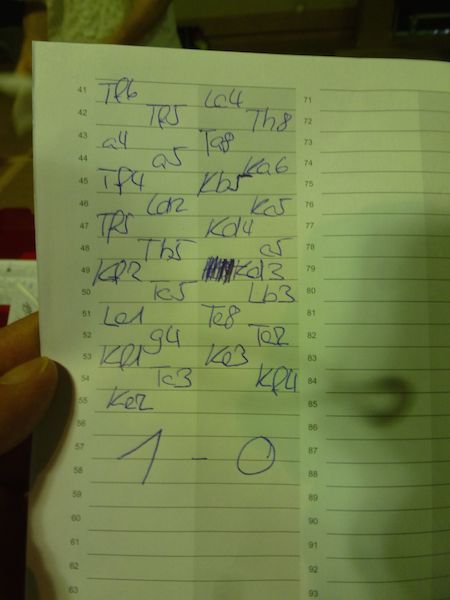 41 Tf6 Lc4 71
42 Tf5 Th8 72
43 a4 Ta8 73
44 a5 Ka6 74
45 Tf4 Kb5 75
46 Ld2 Kc5 76
47 Tf5 Kd4 77
48 Tb5 c5 78
49 Kf2 Kd3 79
50 Tc5 Lb3 80
51 Le1 Te8 81
52 g4 Te2 82
53 Kf1 Ke3 83
54 Tc3 Kf4 84
55 Ke2 85
56 86
57 1 - 0 87
58 88
59 89
60 90
61 91
62 92
63 93